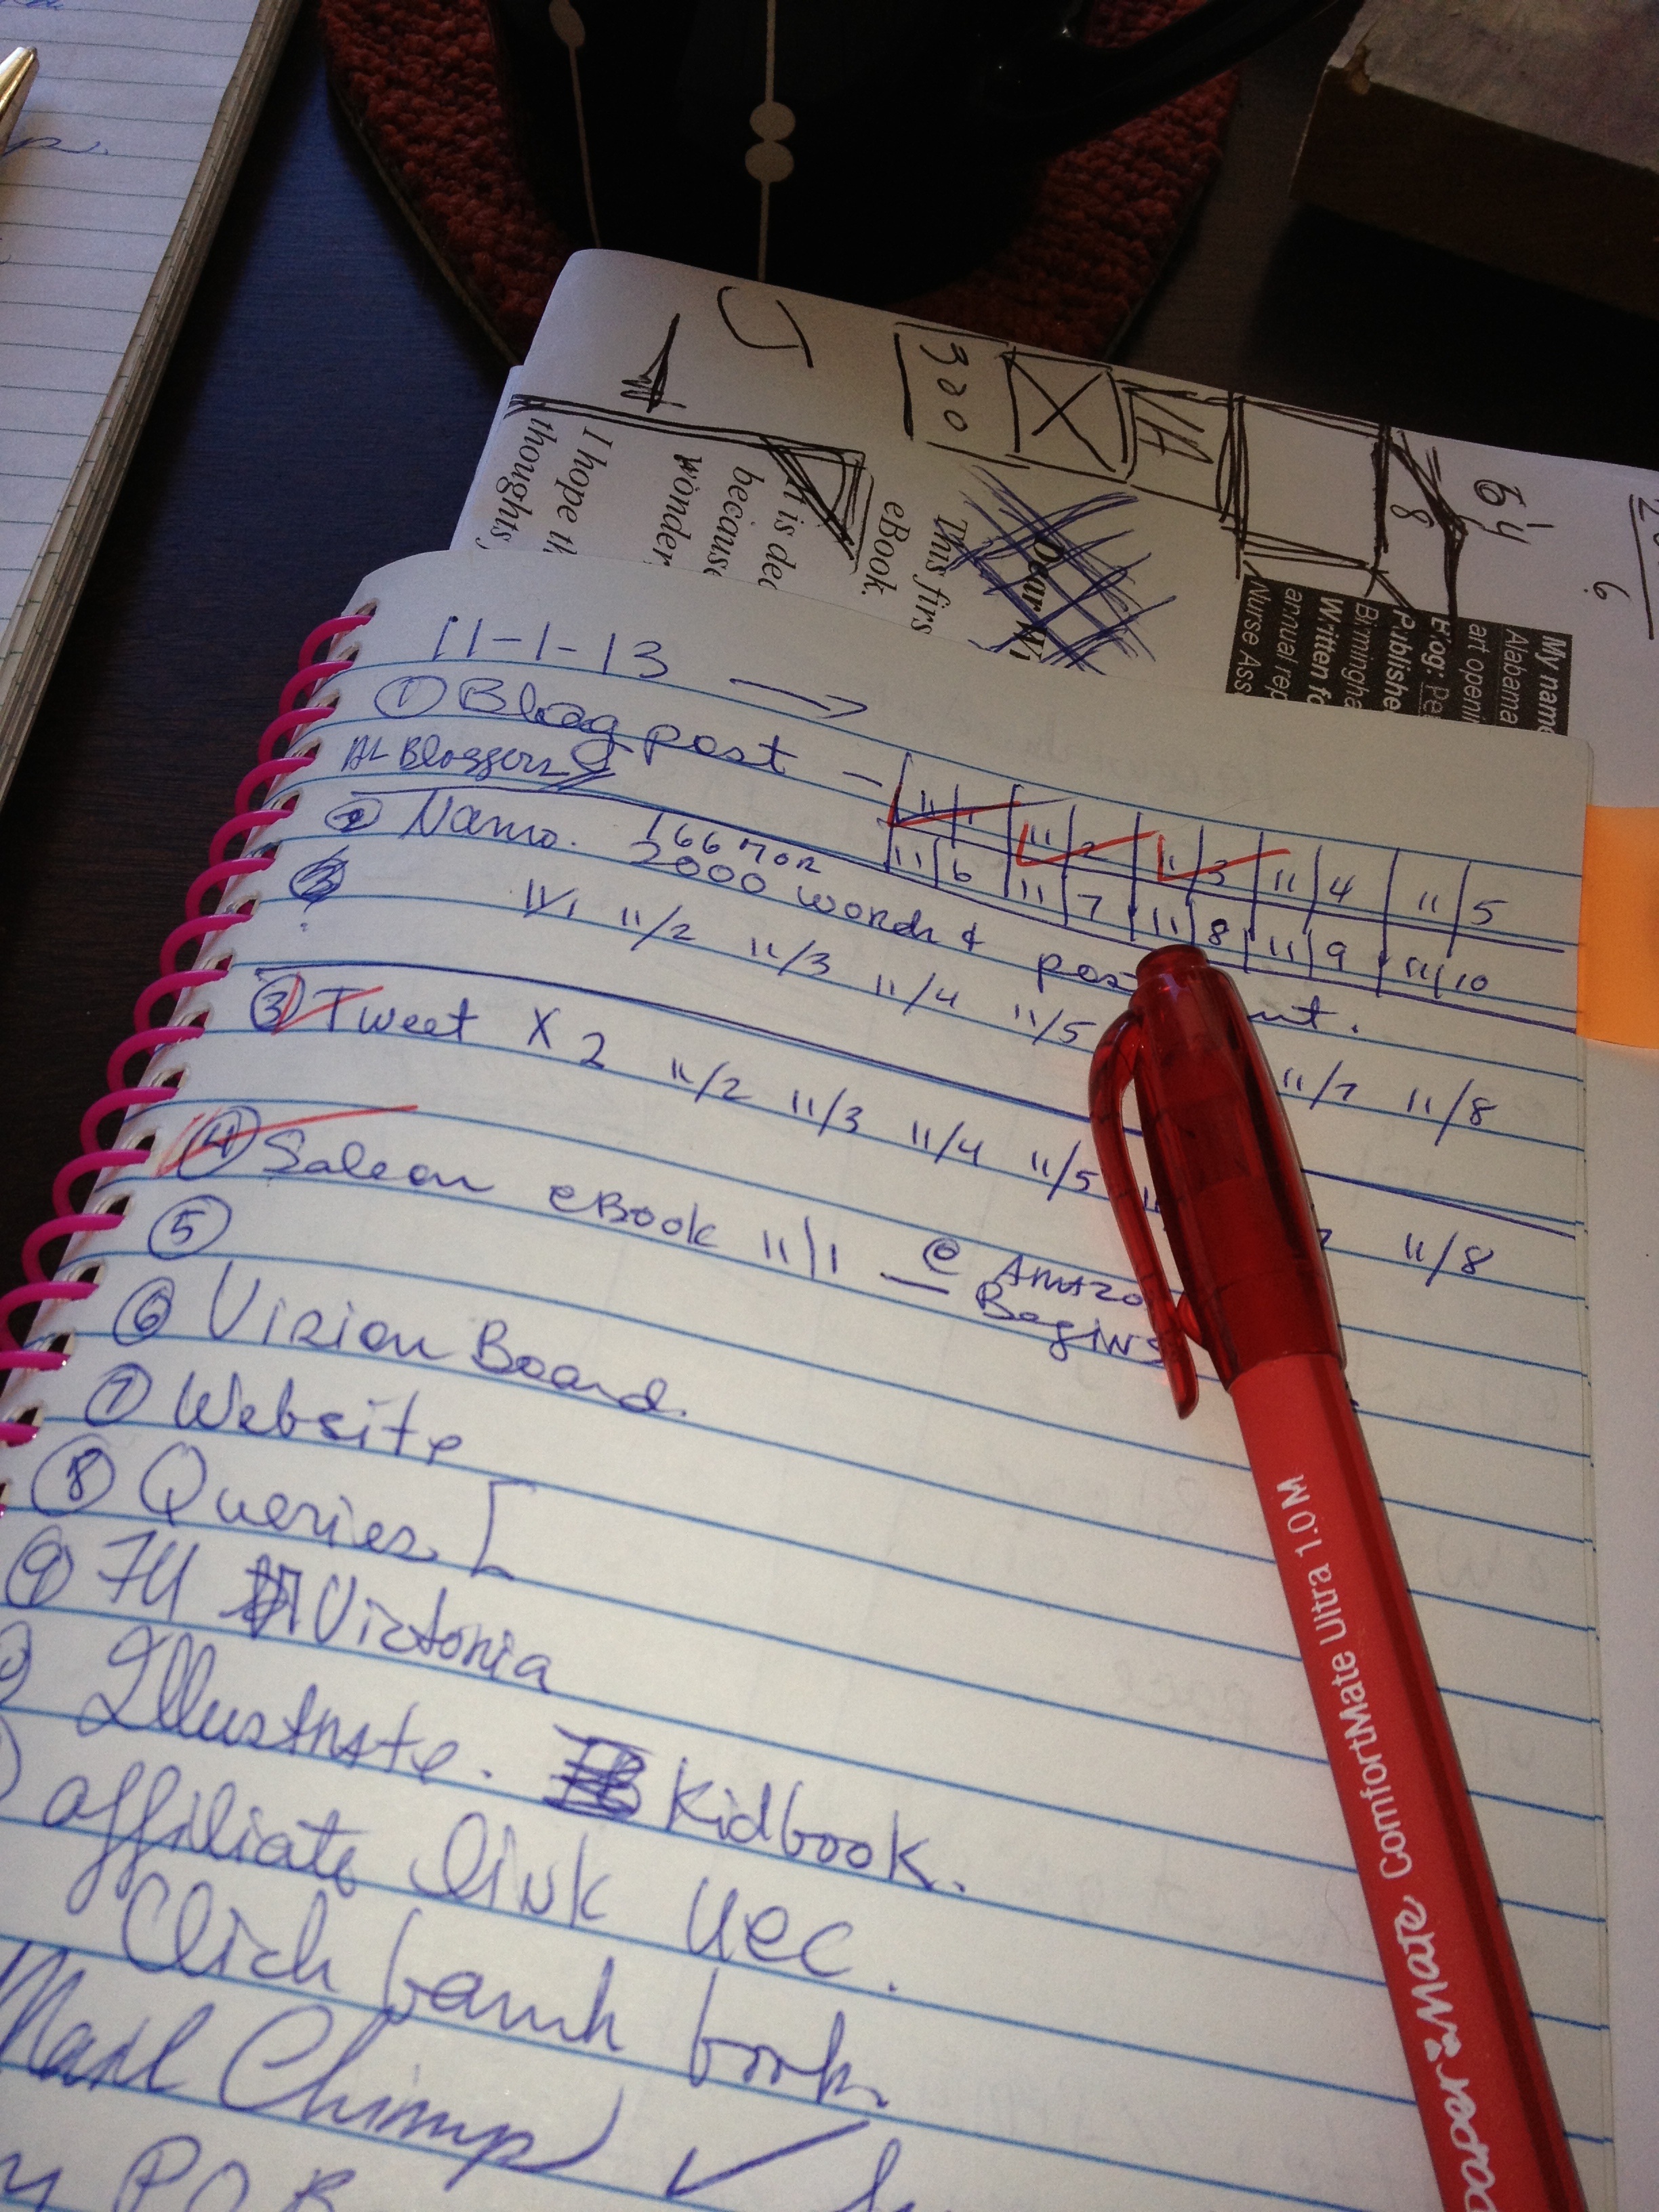 320
VA
64
8
6
I hope th
thoughts
wonder
because
it is dec
eBook.
This firs
Dear Wi
My name
Alabama
art openi
Blog: Pe
Publishe
Birmingha
Written fo
annual rep
Nurse Ass
11-1-13 →
① Blog post –
AL Bloggers
11 1 11 2 11 3 11 4 11 5
11 6 11 7 11 8 11 9 11 10
② Nano. 1667 or
2000 words & pos
11/1 11/2 11/3 11/4 11/5 11/7 11/8
③ Tweet X 2 11/2 11/3 11/4 11/5 11/8
④ Sale on eBook 11/1 – @ Amazo
Begins
⑤
⑥ Vision Board.
⑦ Website
⑧ Queries [
⑨ FU Victoria
Illustrate. Kidbook.
affiliate link UEC.
Click bank book.
Mail Chimp ✓
P O B
paper:mate ComfortMate Ultra 1.0 M